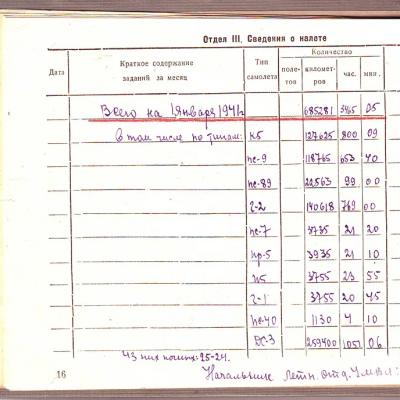 Отдел III. Сведения о налете
Дата Краткое содержание заданий за месяц Тип самолета Количество
полетов километров час. мин.
Всего на 1 января 1941г 685281 3465 05
в том числе по типам: К5 127625 800 09
пс-9 118765 653 40
пс-89 22563 99 00
г-2 140618 769 00
пс-7 3735 21 20
пр-5 3935 21 10
п5 3755 23 55
г-1 3755 20 45
пс-40 1130 4 10
ДС-3 259400 1051 06
Из них ночных: 25-24.
16 Начальник летн. отд.